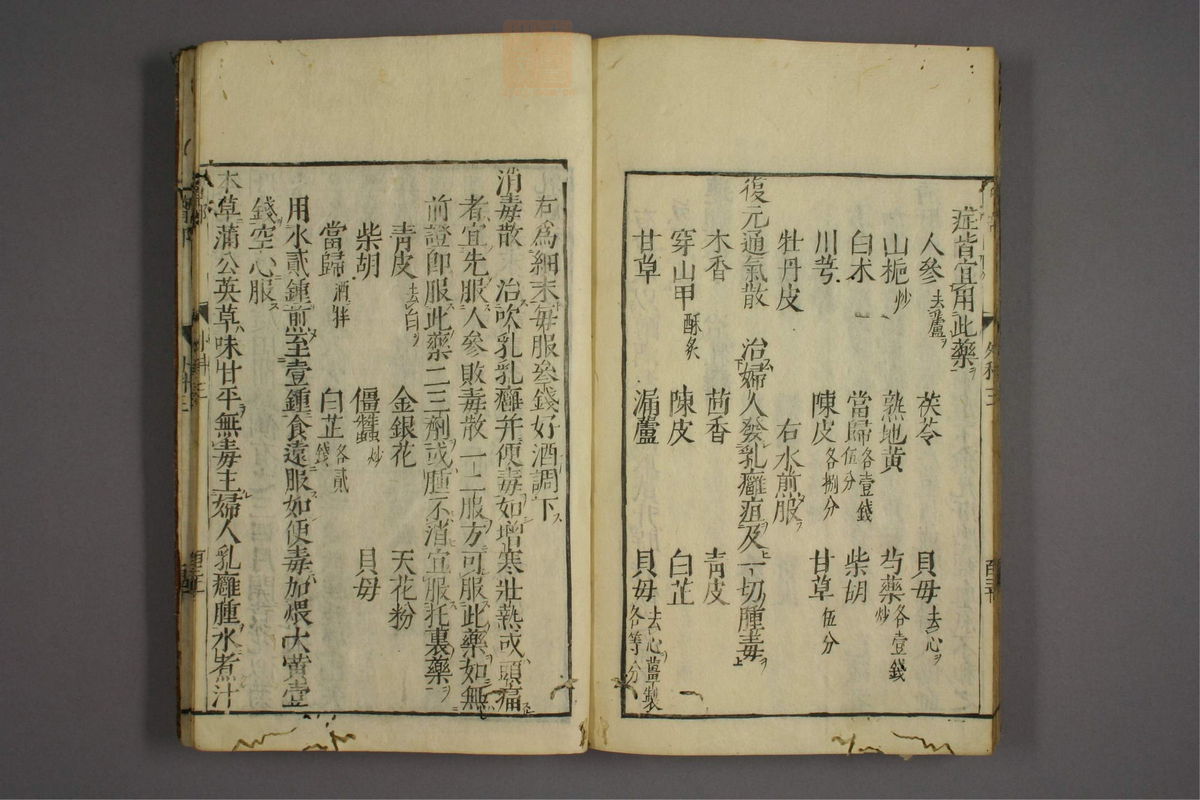 症皆宜用此藥
人參去蘆 茯苓 貝母去心
山梔炒 熟地黃 芍藥各壹錢炒
白朮 當歸各壹錢伍分 柴胡
川芎 陳皮各捌分 甘草伍分
牡丹皮 右水煎服
復元通氣散 治婦人發乳癰疽及一切腫毒
木香 茴香 青皮
穿山甲酥炙 陳皮 白芷
甘草 漏蘆 貝母去心薑製各等分
右為細末每服參錢好酒調下
消毒散 治吹乳乳癰并便毒如增寒壯熱或頭痛
者宜先服人參敗毒散一二服方可服此藥如無
前證即服此藥二三劑或腫不消宜服托裏藥
青皮去白 金銀花 天花粉
柴胡 僵蠶炒 貝母
當歸酒拌 白芷各貳錢
用水貳鍾煎至壹鍾食遠服如便毒加煨大黃壹
錢空心服
本草蒲公英草味甘平無毒主婦人乳癰腫水煮汁